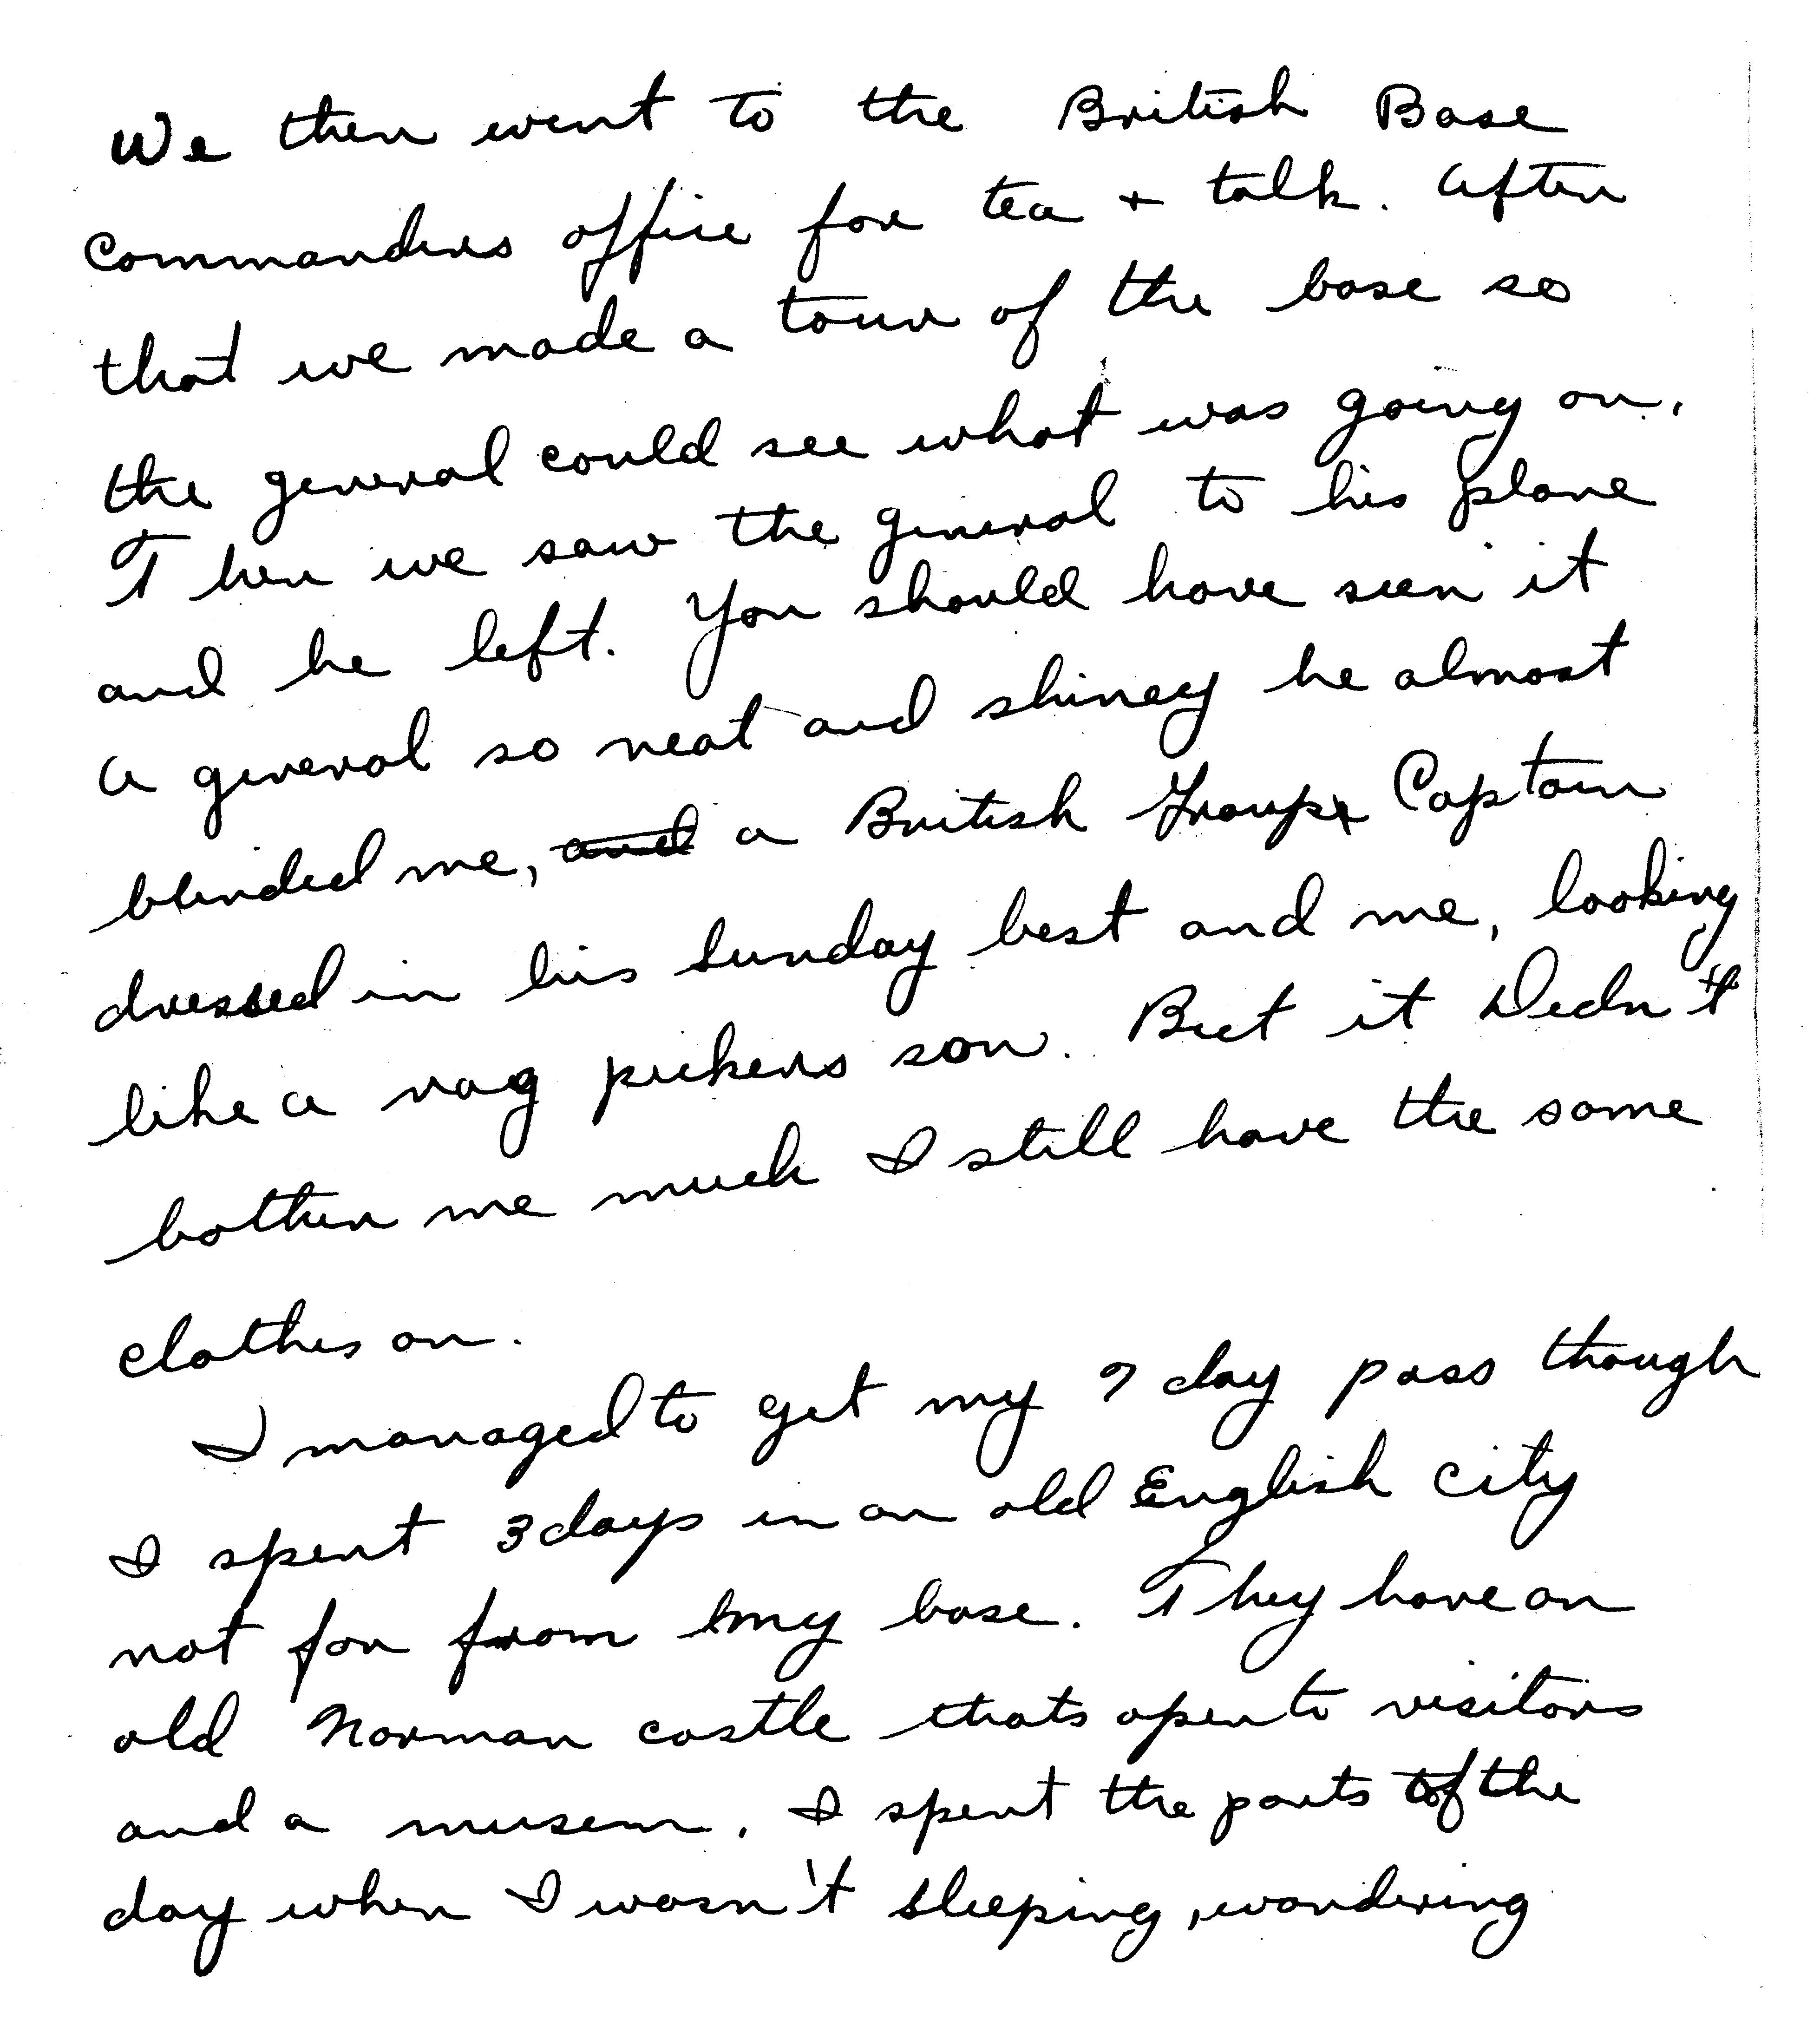 We then went to the British Base
Commanders office for tea + talk. After
that we made a tour of the base so
the general could see what was going on.
Then we saw the general to his plane
and he left. You should have seen it
a general so neat and shiney he almost
blinded me, and a British Group Captain
dressed in his Sunday best and me, looking
like a rag pickers son. But it Didn't
bother me much I still have the same
clothes on.
I managed to get my 7 day pass though
I spent 3 days in an old English city
not far from my base. They have an
old Norman castle thats open to visitors
and a musem. I spent the parts of the
day when I wasn't sleeping, wandering